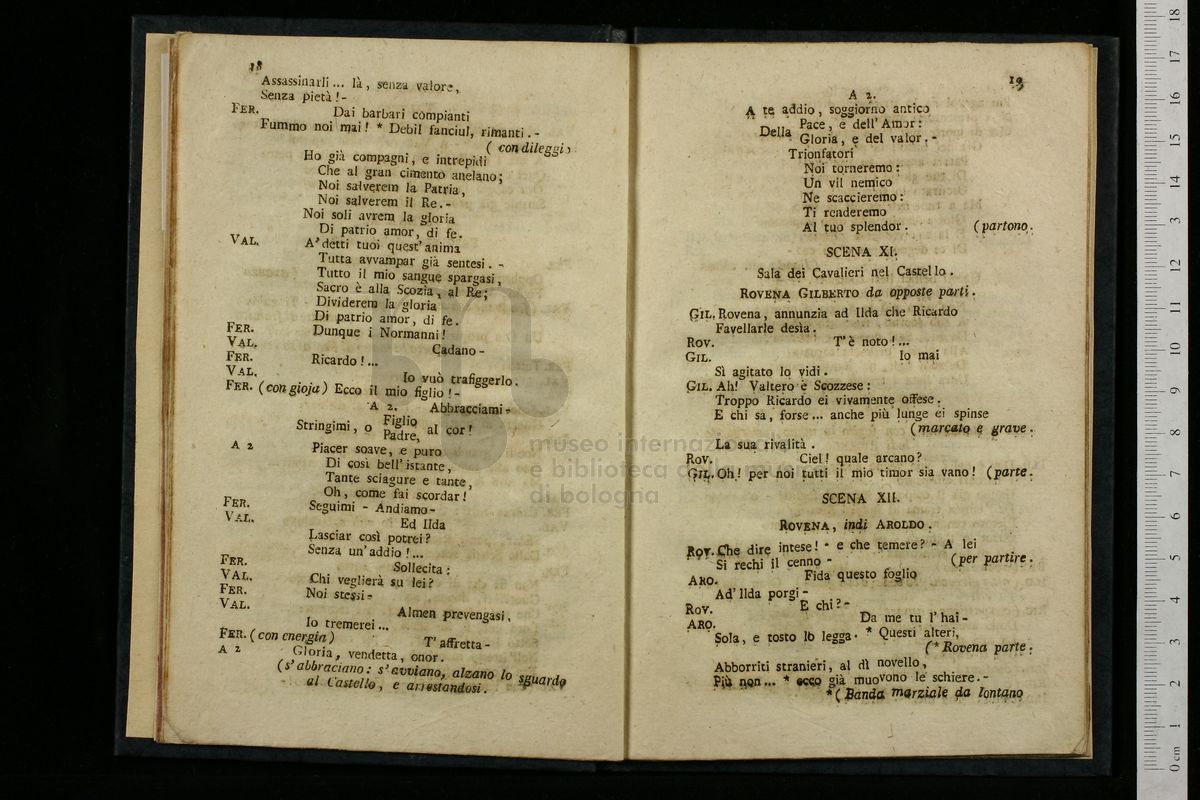 18
Assassinarli... là, senza valore,
Senza pietà! -
FER. Dai barbari compianti
Fummo noi mai! * Debil fanciul, rimanti. -
( con dileggio
Ho già compagni, e intrepidi
Che al gran cimento anelano;
Noi salverem la Patria,
Noi salverem il Re. -
Noi soli avrem la gloria
Di patrio amor, di fe.
VAL. A' detti tuoi quest' anima
Tutta avvampar già sentesi. -
Tutto il mio sangue spargasi,
Sacro è alla Scozia, al Re;
Dividerem la gloria
Di patrio amor, di fe.
FER. Dunque i Normanni!
VAL. Cadano -
FER. Ricardo!...
VAL. Io vuò trafiggerlo.
FER. (con gioja) Ecco il mio figlio! -
A 2. Abbracciami -
Stringimi, o Figlio al cor!
Padre,
A 2 Piacer soave, e puro
Di così bell' istante,
Tante sciagure e tante,
Oh, come fai scordar!
FER. Seguimi - Andiamo -
VAL. Ed Ilda
Lasciar così potrei?
Senza un' addio!...
FER. Sollecita:
VAL. Chi veglierà su lei?
FER. Noi stessi -
VAL. Almen prevengasi.
Io tremerei...
FER. (con energia) T' affretta -
A 2 Gloria, vendetta, onor.
(s' abbraciano: s' avviano, alzano lo sguardo
al Castello, e arrestandosi.
19
A 2.
A te addio, soggiorno antico
Della Pace, e dell' Amor:
Gloria, e del valor. -
Trionfatori
Noi torneremo:
Un vil nemico
Ne scaccieremo:
Ti renderemo
Al tuo splendor. (partono.
SCENA XI.
Sala dei Cavalieri nel Castello.
ROVENA GILBERTO da opposte parti.
GIL. Rovena, annunzia ad Ilda che Ricardo
Favellarle desìa.
ROV. T' è noto!...
GIL. Io mai
Sì agitato lo vidi.
GIL. Ah! Valtero è Scozzese:
Troppo Ricardo ei vivamente offese.
E chi sà, forse... anche più lunge ei spinse
(marcato e grave.
La sua rivalità.
ROV. Ciel! quale arcano?
GIL. Oh! per noi tutti il mio timor sia vano! (parte.
SCENA XII.
ROVENA, indi AROLDO.
ROV. Che dire intese! - e che temere? - A lei
Si rechi il cenno - (per partire.
ARO. Fida questo foglio
Ad' Ilda porgi -
ROV. E chi? -
ARO. Da me tu l' hai -
Sola, e tosto lo legga. * Questi alteri,
(* Rovena parte.
Abborriti stranieri, al dì novello,
Più non... * ecco già muovono le schiere. -
* ( Banda marziale da lontano
museo internaz
e biblioteca d
di bologna
0 cm 1 2 3 4 5 6 7 8 9 10 11 12 13 14 15 16 17 18